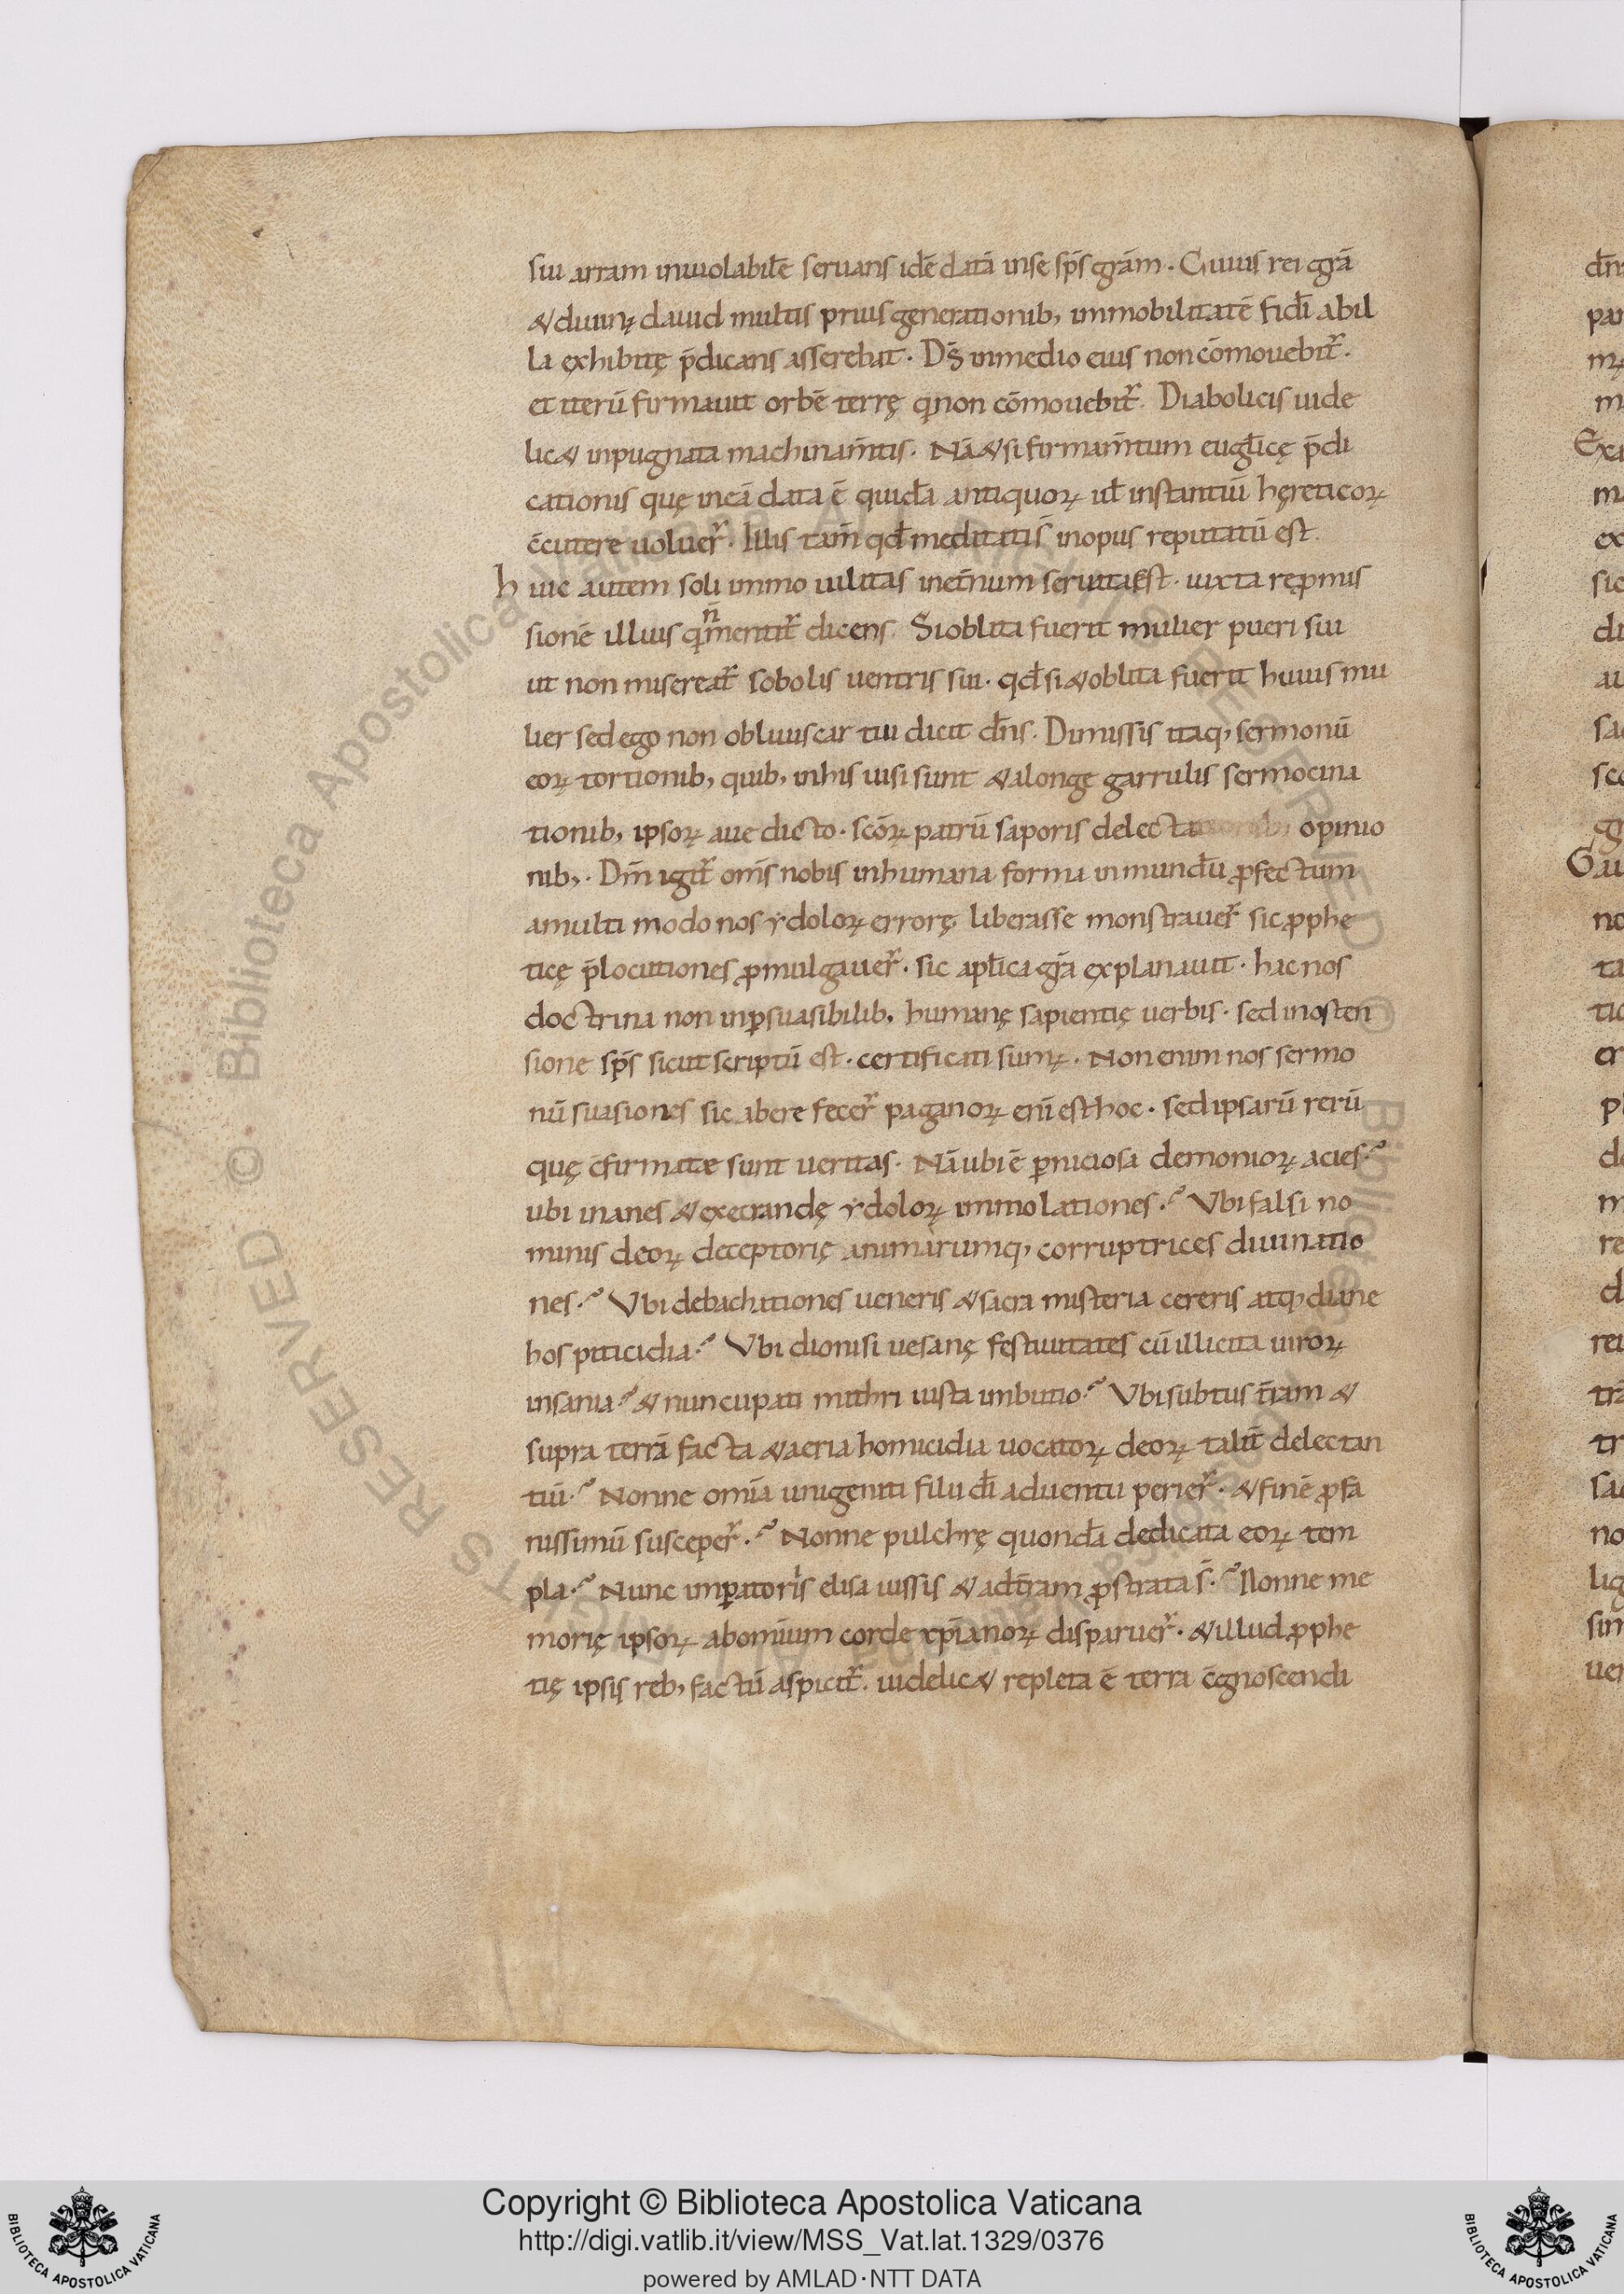 sui arram inuiolabilē seruans idē datā inse sp̄s grām. Cuius rei grā
&diuinę dauid multis prius generationib; immobilitatē fidi ab il
la exhibitę p̄dicans asserebat. D̄s inmedio eius non cōmouebit᷒.
et iterū firmauit orbē terrę q non cōmouebit᷒. Diabolicis uide
lic& inpugnata machinam̄tis. Nā&si firmam̄tum euglicę p̄di
cationis quę ineā data ē quidā antiquoꝝ ul̄ instantiū hęreticoꝝ
c̄cutere uoluer᷒. Illis tam̄ qd̄ meditatis inopus reputatū est.
huic autem soli immo uilitas inet̄num seruata est. iuxta rępromis
sionē illius q n̄ mentit᷒ dicens. Si oblita fuerit mulier pueri sui
ut non misereat᷒ sobolis uentris sui. qd̄ si&oblita fuerit huius mu
lier sed ego non obliuiscar tui dicit dn̄s. Dimissis itaq; sermonū
eoꝝ tortionib; quib; inhis uisi sunt &alonge garrulis sermocina
tionib; ipsoꝝ aue dicto. scōꝝ patrū saporis delecta opinio
nib;. Dn̄m igit᷒ om̄s nobis inhumana forma inmundū ꝓfectum
amulti modo nos ydoloꝝ errorę liberasse monstrauer᷒ sic ꝓphe
ticę p̄locutiones ꝓmulgauer᷒. sic apl̄ica grā explanauit. hac nos
doctrina non inꝑsuasibilib; humanę sapientię uerbis. sed inosten
sione sp̄s sicut scriptū est. certificati sumꝰ. Non enim nos sermo
nū suasiones sic abere fecer᷒ paganoꝝ enī est hoc. sed ipsarū rerū
quę c̄firmate sunt ueritas. Nā ubi ē ꝑniciosa demonioꝝ acies?
ubi inanes &execrandę ydoloꝝ immolationes? Vbi falsi no
minis deoꝝ deceptorię animarumq; corruptrices diuinatio
nes? Vbi debachationes ueneris &sacra misteria cereris atq; diane
hospiticidia? Vbi dionisi uesanę festiuitates cū illicita uiroꝝ
insania? & nuncupati mithri iusta imbutio? Vbi subtus t̄ram &
supra terrā facta &aeria homicidia uocatoꝝ deoꝝ taliū delectan
tiū? Nonne omīa unigeniti filii dī aduentu perier᷒. &finē ꝓfa
nissimū susceper᷒? Nonne pulchrę quondā dedicata eoꝝ tem
pla? Nunc imꝑatoris elisa iussis &adt̄ram ꝓstrata s̄? Nonne me
morię ipsoꝝ abomīum corde xp̄ianoꝝ disparuer᷒. &illud ꝓphe
tię ipsis reb; factū aspicit᷒. uidelic& repleta ē terra c̄gnoscendi
Copyright © Biblioteca Apostolica Vaticana
http://digi.vatlib.it/view/MSS_Vat.lat.1329/0376
powered by AMLAD·NTT DATA